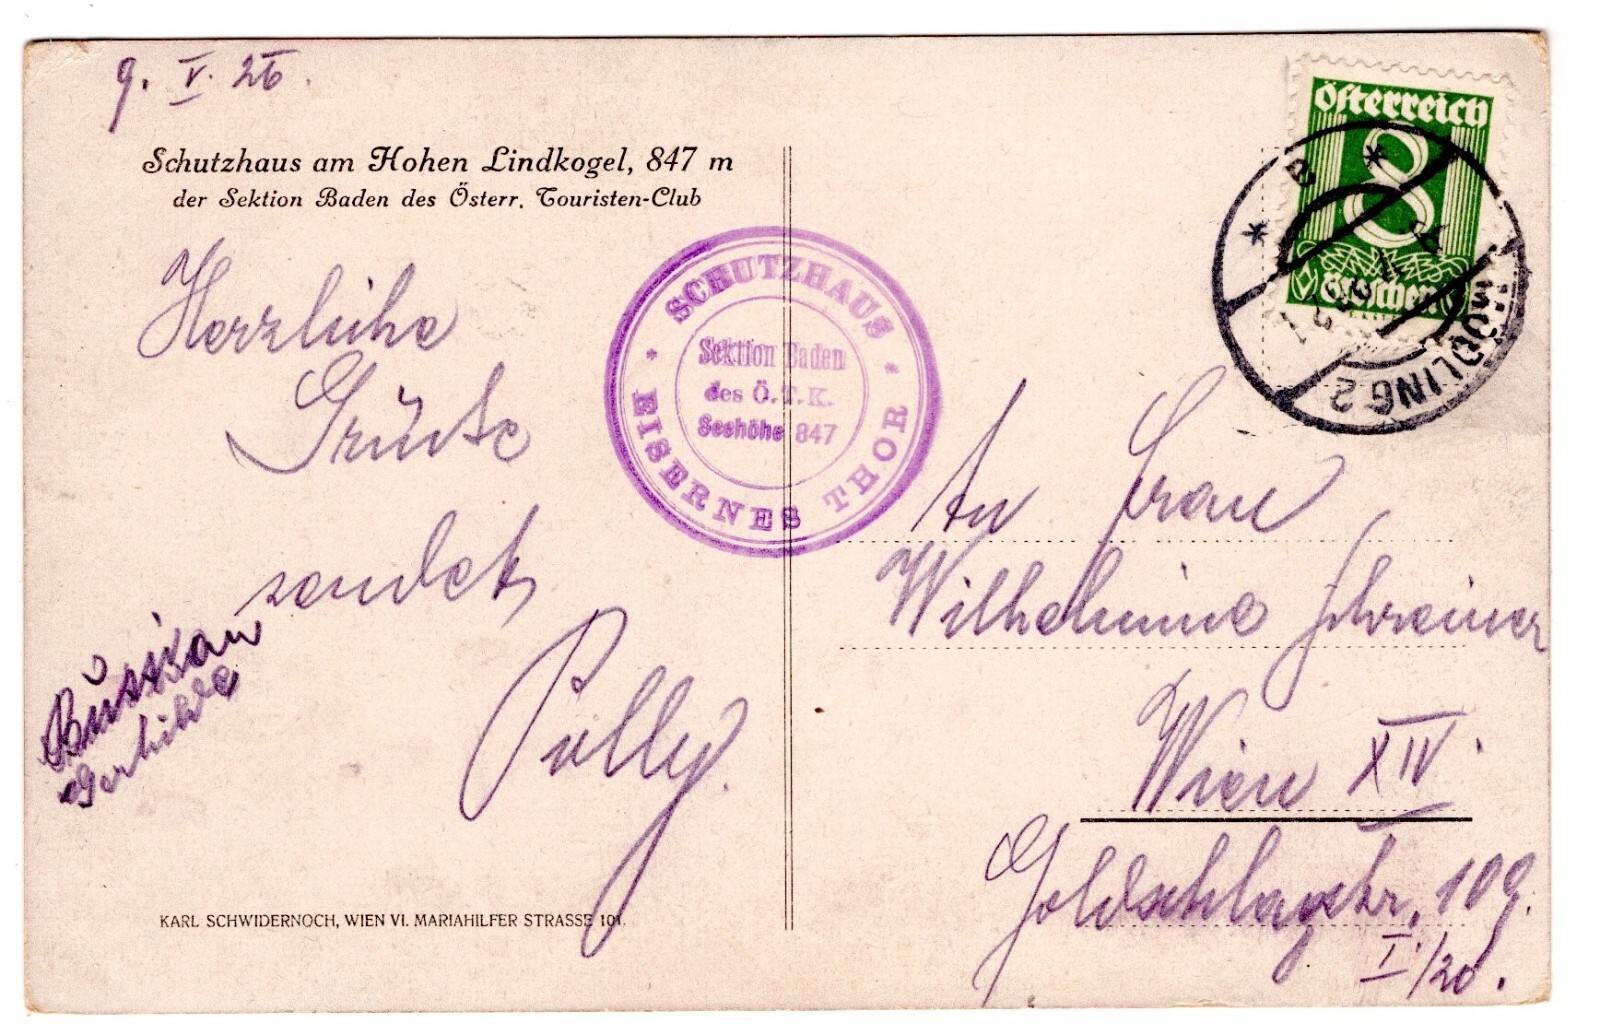 9. V. 26.
Schutzhaus am Hohen Lindkogel, 847 m
der Sektion Baden des Österr. Touristen-Club
Herzliche
Grüße
sendet
Polly.
Gerhilde
KARL SCHWIDERNOCH, WIEN VI. MARIAHILFER STRASSE 101.
* SCHUTZHAUS *
EISERNES THOR
Sektion Baden
des Ö.T.K.
Seehöhe 847
Österreich
8
Groschen
* B *
MÖDLING 2
An Frau
Wilhelmine Schreiner
Wien XIV.
Goldschlagstr. 109.
I./20.